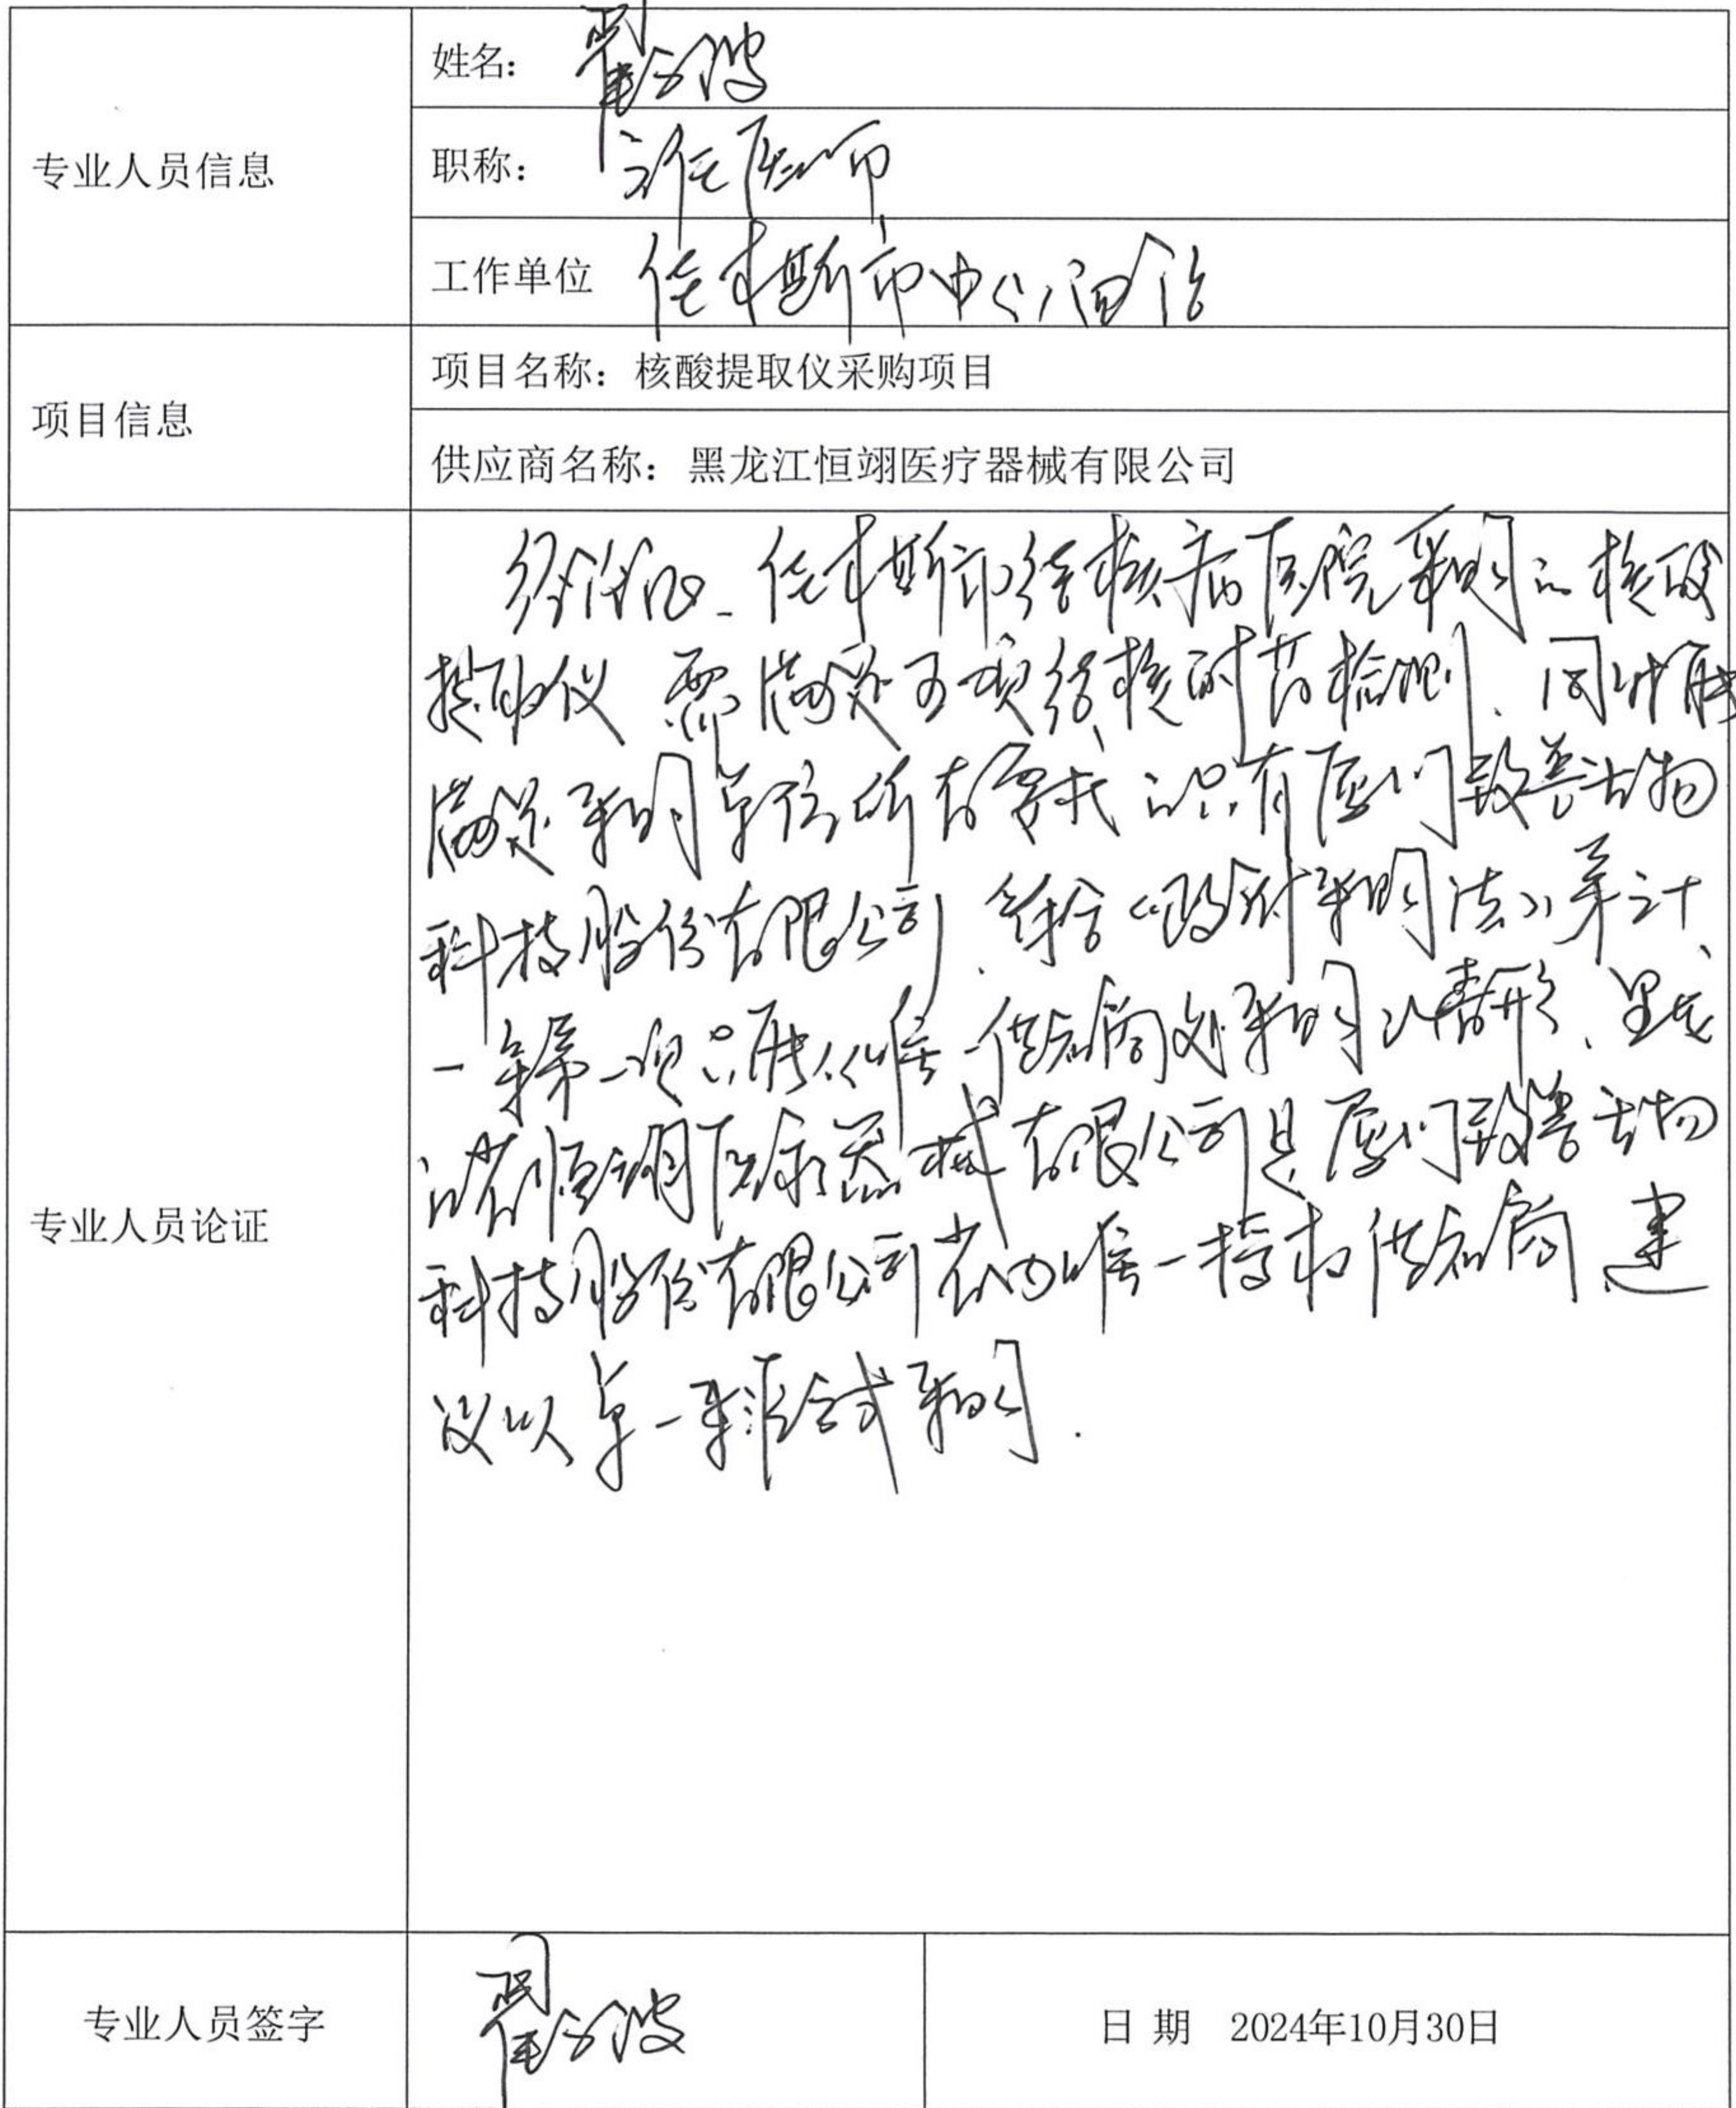 专业人员信息
姓名：翟
职称：主任医师
工作单位 佳木斯市中心医院
项目信息
项目名称：核酸提取仪采购项目
供应商名称：黑龙江恒翊医疗器械有限公司
专业人员论证
经论证，佳木斯市结核病医院采购的核酸
提取仪需满足五项结核耐药检测，同时能
满足采购单位所有要求的只有厦门致善生物
科技股份有限公司，符合《政府采购法》第三十
一条第一项只能从唯一供应商处采购的情形，黑龙
江省恒翊医疗器械有限公司是厦门致善生物
科技股份有限公司省内唯一授权供应商，建
议以单一来源方式采购.
专业人员签字
翟
日 期 2024年10月30日